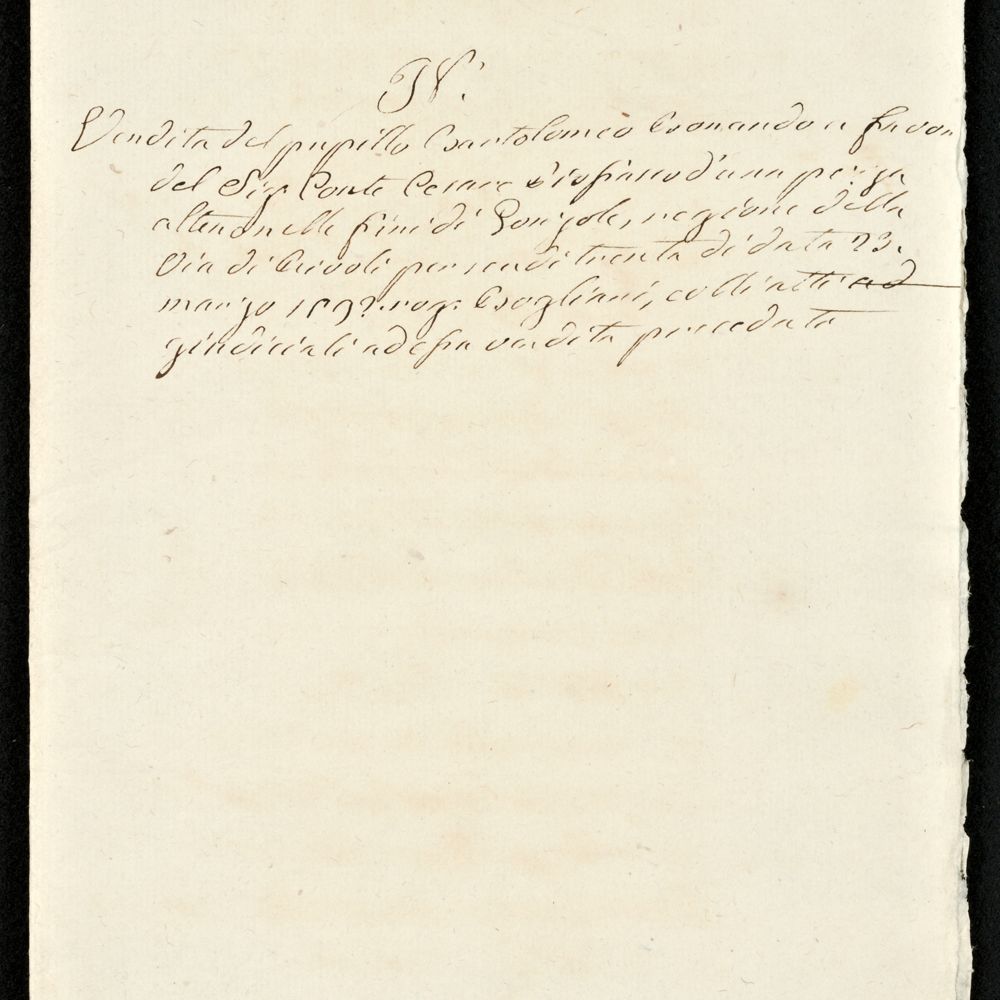 N.
Vendita del pupillo Bartolomeo a favor
del Sig.r Conte Cesare d'una pezza
alteno nelle fini di Gonzole, regione della
Via di Rivoli per scudi trenta di data 23.
marzo rog.o Bogliani, colli atti ad
giudiciali ad essa vendita precedute